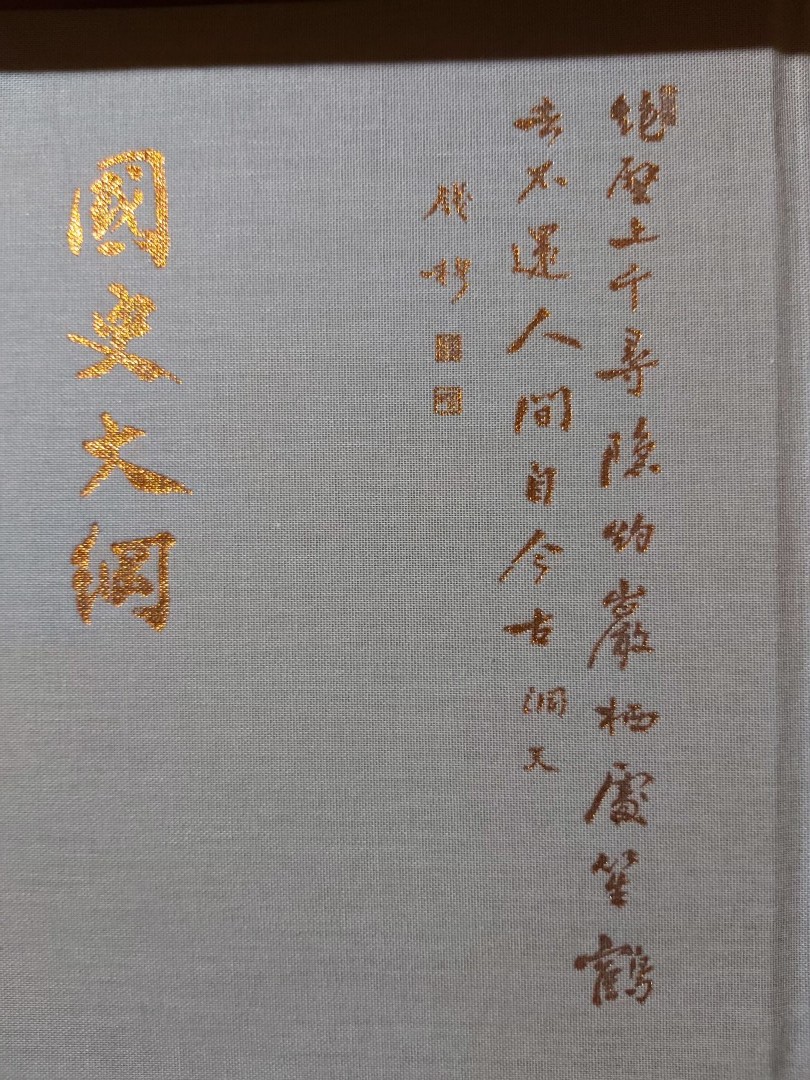 絕壁上千尋隱約巖栖處笙鶴
去不還人間自今古 洞天
錢穆
國史大綱